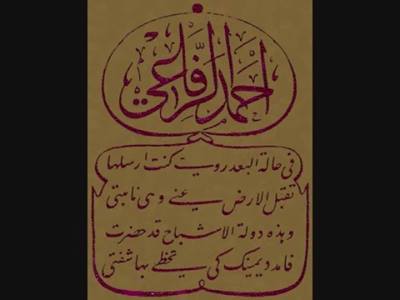 احمد الرفاعی
فی حالة البعد روحیت كنت ارسلها
تقبل الارض عنے وهی نائبتی
وهذه دولة الاشباح قد حضرت
فامدد یمینك كی تحظے بها شفتی